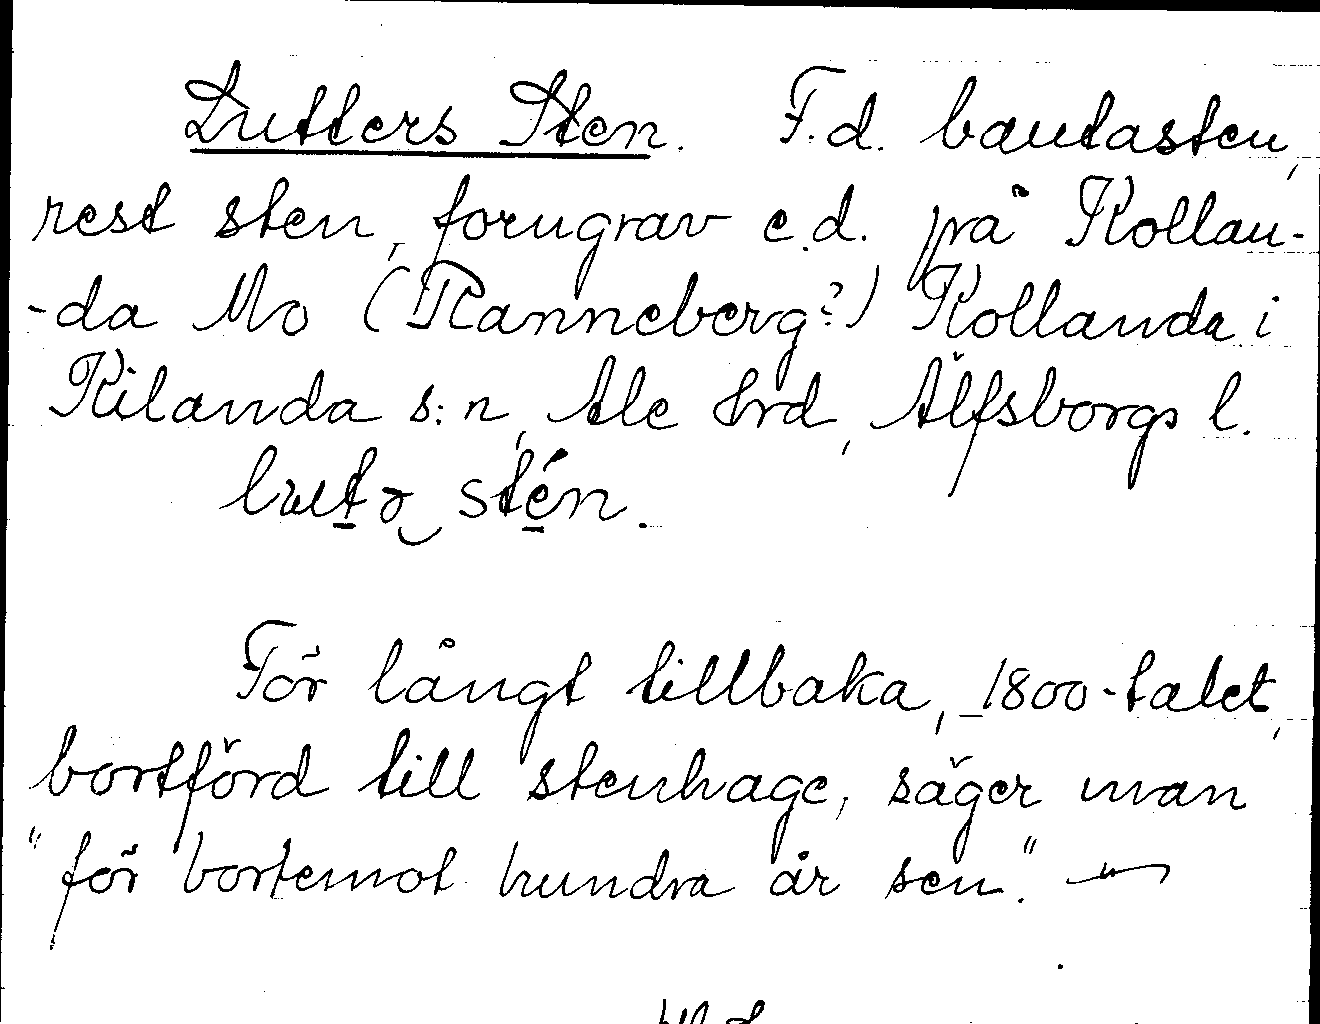 Lutters Sten. F.d. bautasten,
rest sten, forngrav e.d. på Kollan-
-da Mo (Ranneberg?) Kollanda i
Kilanda s:n, Ale Hrd, Älfsborgs l.
stén.
För långt tillbaka, 1800-talet,
bortförd till stenhage, säger man
"för bortemot hundra år sen."